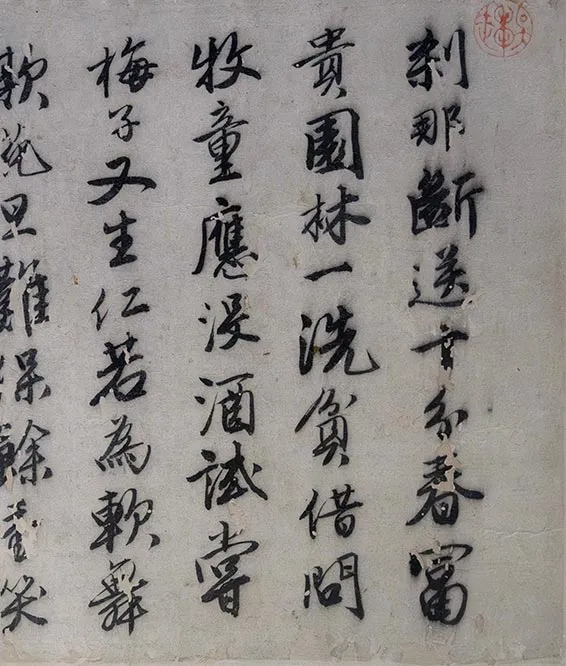 剎那斷送十分春富
貴園林一洗貧借問
牧童應沒酒試嘗
梅子又生仁若為軟舞
欺花旦難保餘香笑